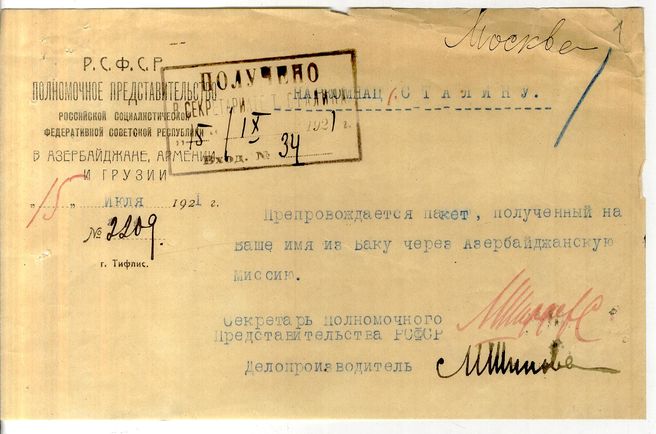 Москве
1
Р.С.Ф.С.Р.
ПОЛНОМОЧНОЕ ПРЕДСТАВИТЕЛЬСТВО
РОССИЙСКОЙ СОЦИАЛИСТИЧЕСКОЙ
ФЕДЕРАТИВНОЙ СОВЕТСКОЙ РЕСПУБЛИКИ
В АЗЕРБАЙДЖАНЕ, АРМЕНИИ
И ГРУЗИИ
„15„ июля 1921 г.
№ 2209.
г. Тифлис.
ПОЛУЧЕНО
В СЕКРЕТАРИАТЕ Т. СТАЛИНА
15/IX 1921 г.
Вход. № 34
НАРКОМНАЦ, СТАЛИНУ.
Препровождается пакет, полученный на
Ваше имя из Баку через Азербайджанскую
Миссию.
Секретарь Полномочного
Представительства РСФСР
Делопроизводитель